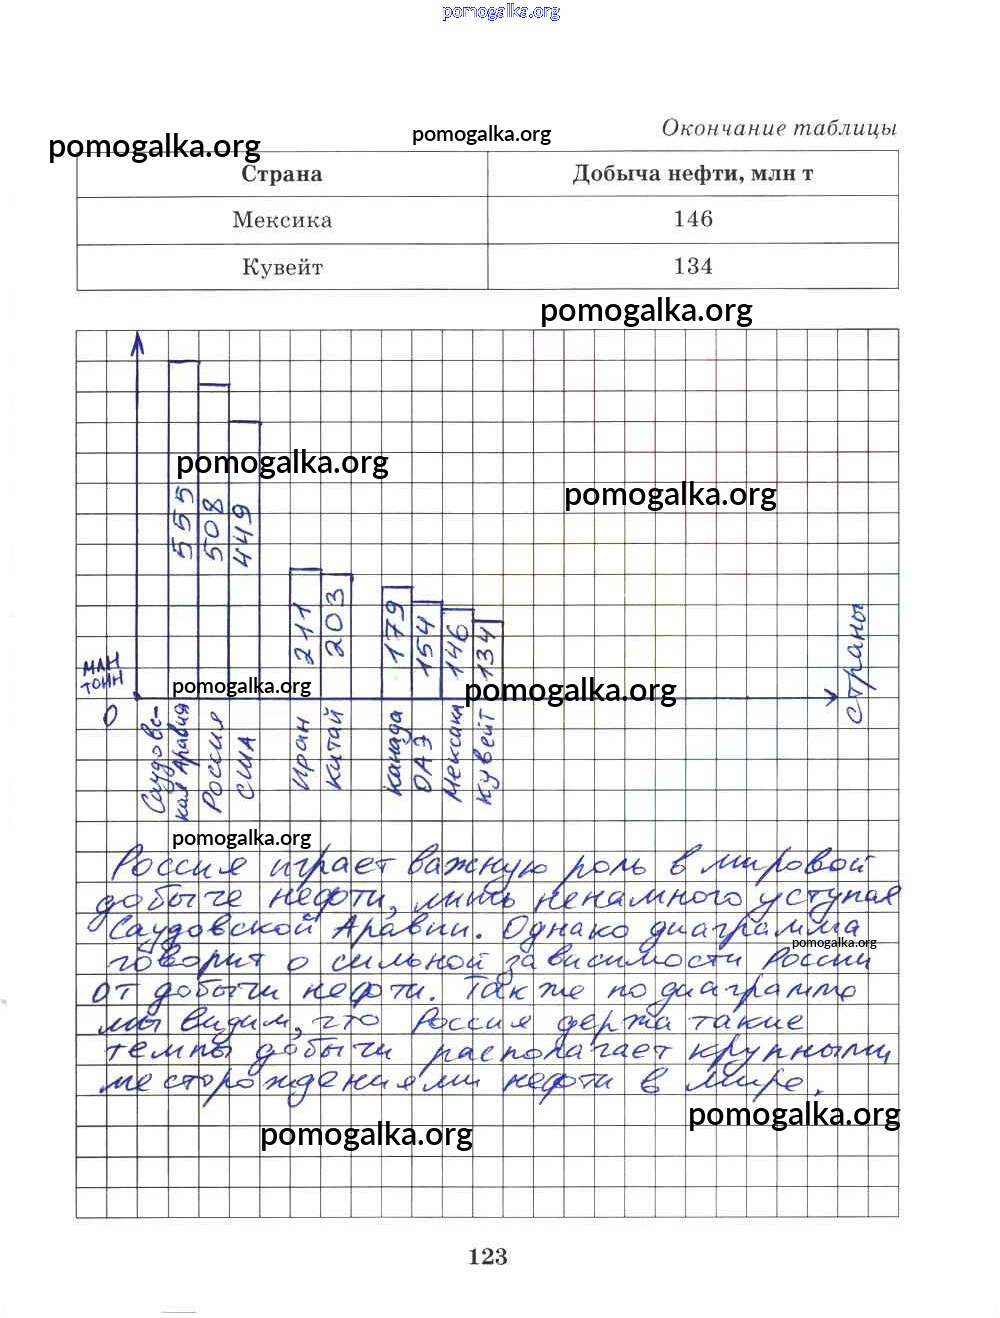 pomogalka.org
Окончание таблицы
pomogalka.org
pomogalka.org
Страна Добыча нефти, млн т
Мексика 146
Кувейт 134
pomogalka.org
pomogalka.org
pomogalka.org
555
508
449
211
203
179
154
146
134
млн
тонн
0
pomogalka.org
pomogalka.org
страны
Саудовс-
кая Аравия
Россия
США
Иран
Китай
Канада
ОАЭ
Мексика
Кувейт
pomogalka.org
Россия играет важную роль в мировой
добыче нефти, лишь ненамного уступая
Саудовской Аравии. Однако диаграмма
pomogalka.org
говорит о сильной зависимости России
от добычи нефти. Также по диаграмме
мы видим, что Россия держа такие
темпы добычи располагает крупными
месторождениями нефти в мире.
pomogalka.org
pomogalka.org
123